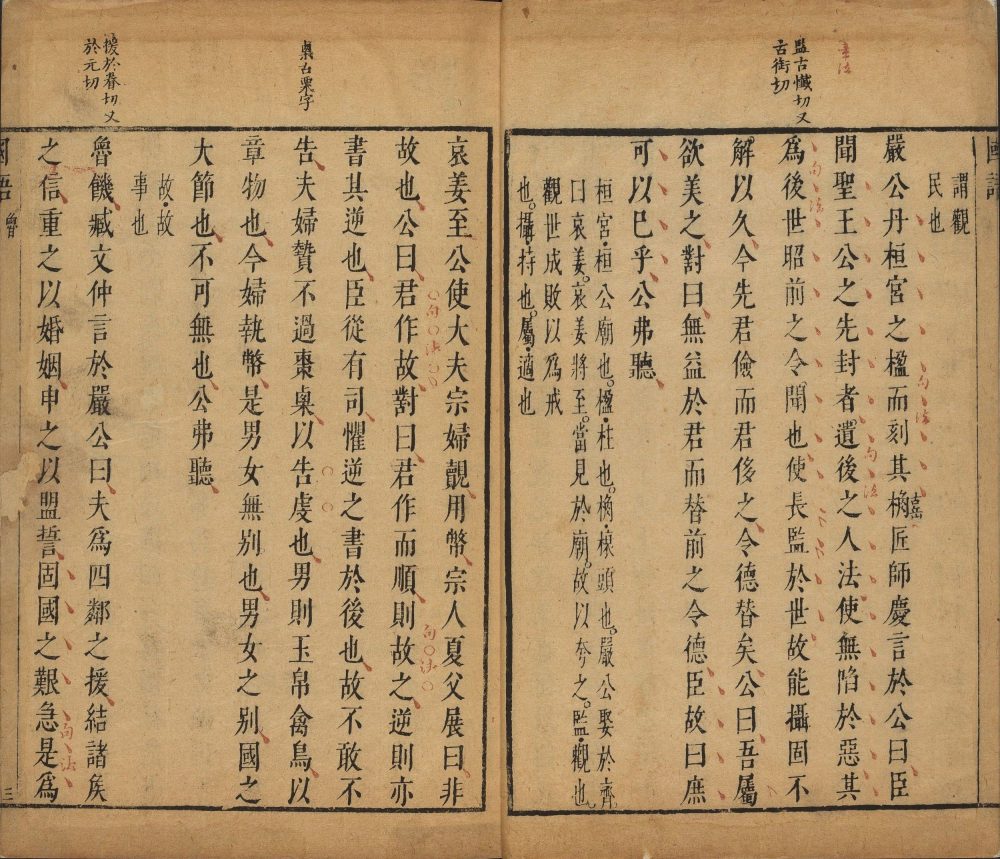 國語
謂觀
民也
嚴公丹桓宮之楹而刻其桷匠師慶言於公曰臣
聞聖王公之先封者遺後之人法使無陷於惡其
為後世昭前之令聞也使長監於世故能攝固不
解以久今先君儉而君侈之令德替矣公曰吾屬
欲美之對曰無益於君而替前之令德臣故曰庶
可以已乎公弗聽
桓宮桓公廟也楹柱也桷榱頭也嚴公娶於齊
曰哀姜哀姜將至當見於廟故以夸之監觀也
觀世成敗以為戒
也攝持也屬適也
章法
監古懺切又
古銜切
句法
句法
句法
哀姜至公使大夫宗婦覿用幣宗人夏父展曰非
故也公曰君作故對曰君作而順則故之逆則亦
書其逆也臣從有司懼逆之書於後也故不敢不
告夫婦贄不過棗㮚以告虔也男則玉帛禽鳥以
章物也今婦執幣是男女無別也男女之別國之
大節也不可無也公弗聽
故故
事也
魯饑臧文仲言於嚴公曰夫為四鄰之援結諸矦
之信重之以婚姻申之以盟誓固國之艱急是為
㮚古栗字
援於眷切又
於元切
句法
句法
句法
國語 魯 三